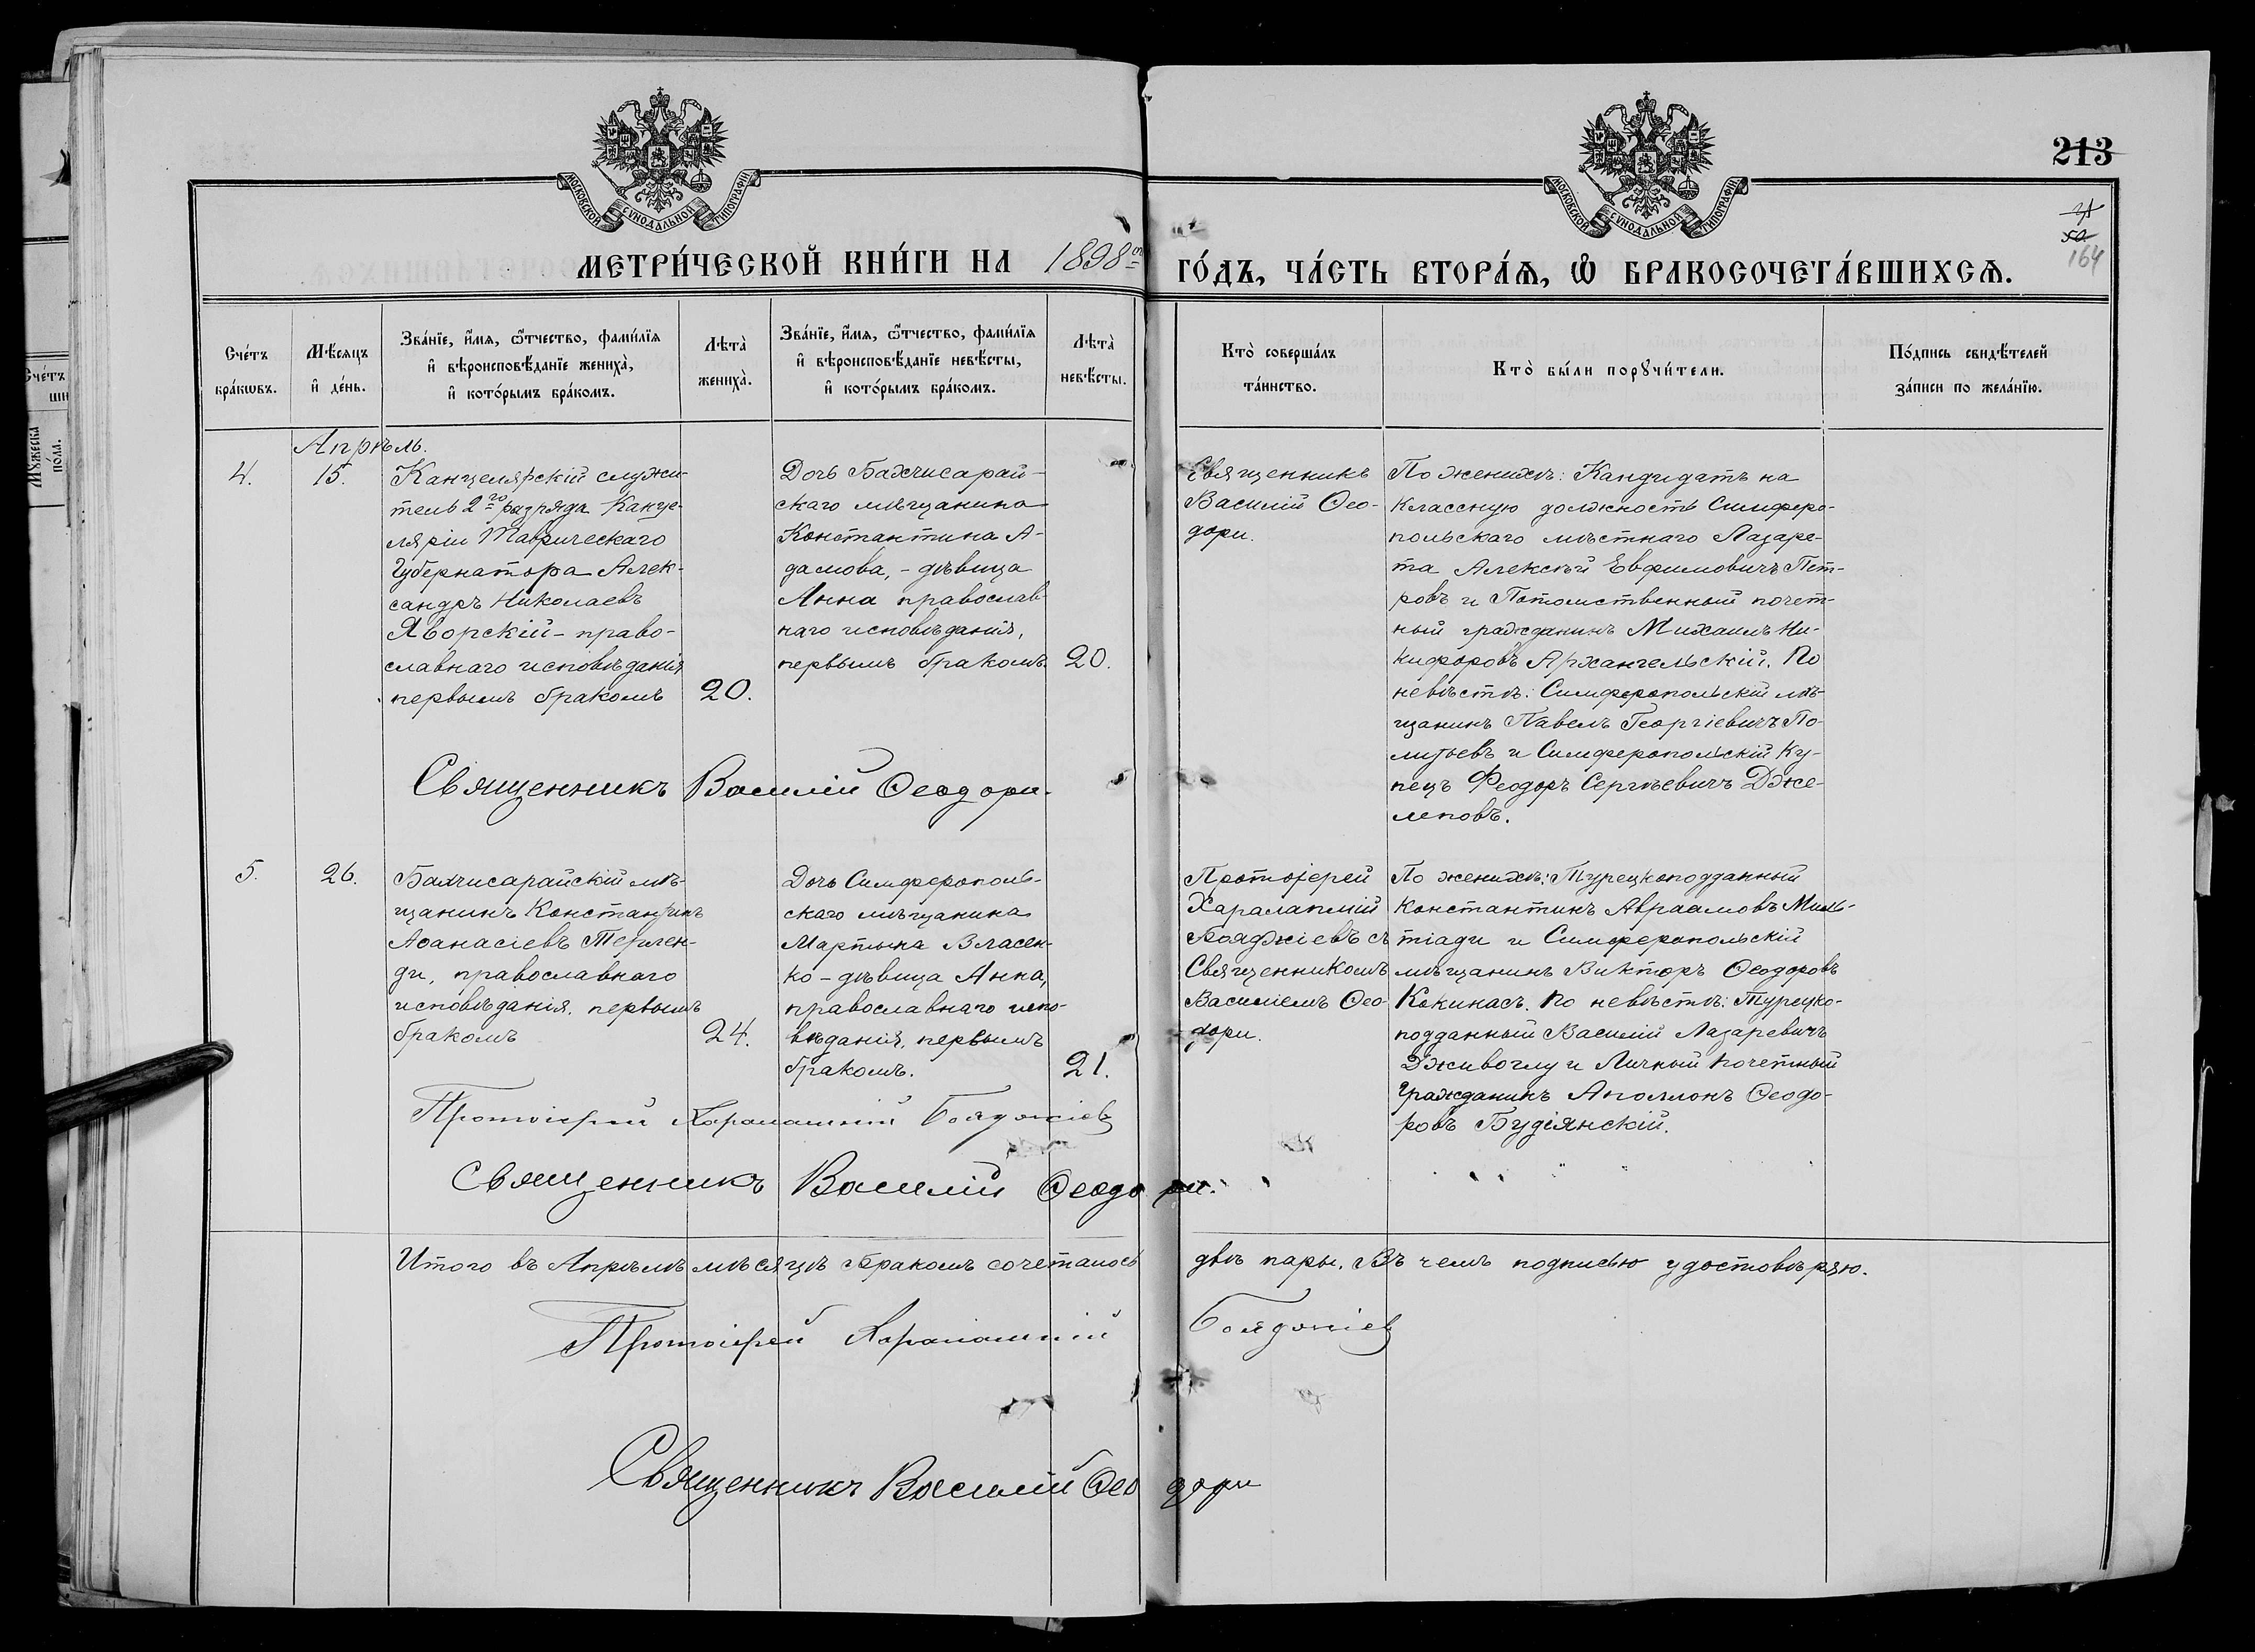 213
31
50
164
МОСКОВСКОЙ СУНОДАЛЬНОЙ ТИПОГРАФІИ
МОСКОВСКОЙ СУНОДАЛЬНОЙ ТИПОГРАФІИ
МЕТРИ́ЧЕСКОЙ КНИ́ГИ НА 1898й ГО́ДЪ, ЧА́СТЬ ВТОРА́Ѧ, Ѡ҆ БРАКОСОЧЕТА́ВШИХСѦ.
Сче́тъ
бра́кѡвъ.
Мѣ́сяцъ
и҆ де́нь.
Зва́нїе, и҆́мя, ѻ҆́тчество, фами́лїя
и҆ вѣроисповѣ́данїе жениха̀,
и҆ кото́рымъ бра́комъ.
Лѣта̀
жениха̀.
Зва́нїе, и҆́мя, ѻ҆́тчество, фами́лїя
и҆ вѣроисповѣ́данїе невѣ́сты,
и҆ кото́рымъ бра́комъ.
Лѣта̀
невѣ́сты.
Кто̀ соверша́лъ
та́инство.
Кто̀ бы́ли порꙋчи́тели.
По́дпись свидѣ́телей
за́писи по жела́нїю.
Апрѣль.
4.
15.
Канцелярскій служи-
тель 2го разряда Канце-
ляріи Таврическаго
Губернатора Алек-
сандръ Николаевъ
Яворскій - право-
славнаго исповѣданія
первымъ бракомъ
20.
Дочь Бахчисарай-
скаго мѣщанина
Константина А-
дамова, - дѣвица
Анна православ-
наго исповѣданія,
первымъ бракомъ
20.
Священникъ
Василій Ѳео-
дори.
По женихѣ: Кандидатъ на
классную должность Симферо-
польскаго мѣстнаго Лазаре-
та Алексѣй Евфимовичъ Пет-
ровъ и Потомственный почет-
ный гражданинъ Михаилъ Ни-
кифоровъ Архангельскій. По
невѣстѣ: Симферопольскій мѣ-
щанинъ Павелъ Георгіевичъ По-
литьевъ и Симферопольскій Ку-
пецъ Феодоръ Сергѣевичъ Дже-
леповъ.
Священникъ Василій Ѳеодори.
5.
26.
Бахчисарайскій мѣ-
щанинъ Константинъ
Аѳанасіевъ Терлен-
ди, православнаго
исповѣданія, первымъ
бракомъ
24.
Дочь Симферополь-
скаго мѣщанина
Мартына Власен-
ко - дѣвица Анна,
православнаго испо-
вѣданія, первымъ
бракомъ.
21.
Протоіерей
Харалампій
Бояджіевъ съ
Священникомъ
Василіемъ Ѳео-
дори.
По женихѣ: Турецкоподданный
Константинъ Авраамовъ Миль-
тіади и Симферопольскій
мѣщанинъ Викторъ Ѳеодоровъ
Кокинасъ. По невѣстѣ: Турецко-
подданный Василій Лазаревичъ
Дживоглу и Личный почетный
Гражданинъ Аполлонъ Ѳеодо-
ровъ Будіянскій.
Протоіерей Харалампій Бояджіевъ
Священникъ Василій Ѳеодори.
Итого въ Апрѣлѣ мѣсяцѣ бракомъ сочеталось двѣ пары. Въ чемъ подписью удостовѣряю.
Протоіерей Харалампій Бояджіевъ
Священникъ Василій Ѳеодори
Сче́тъ
Мꙋ́жеска
по́ла.